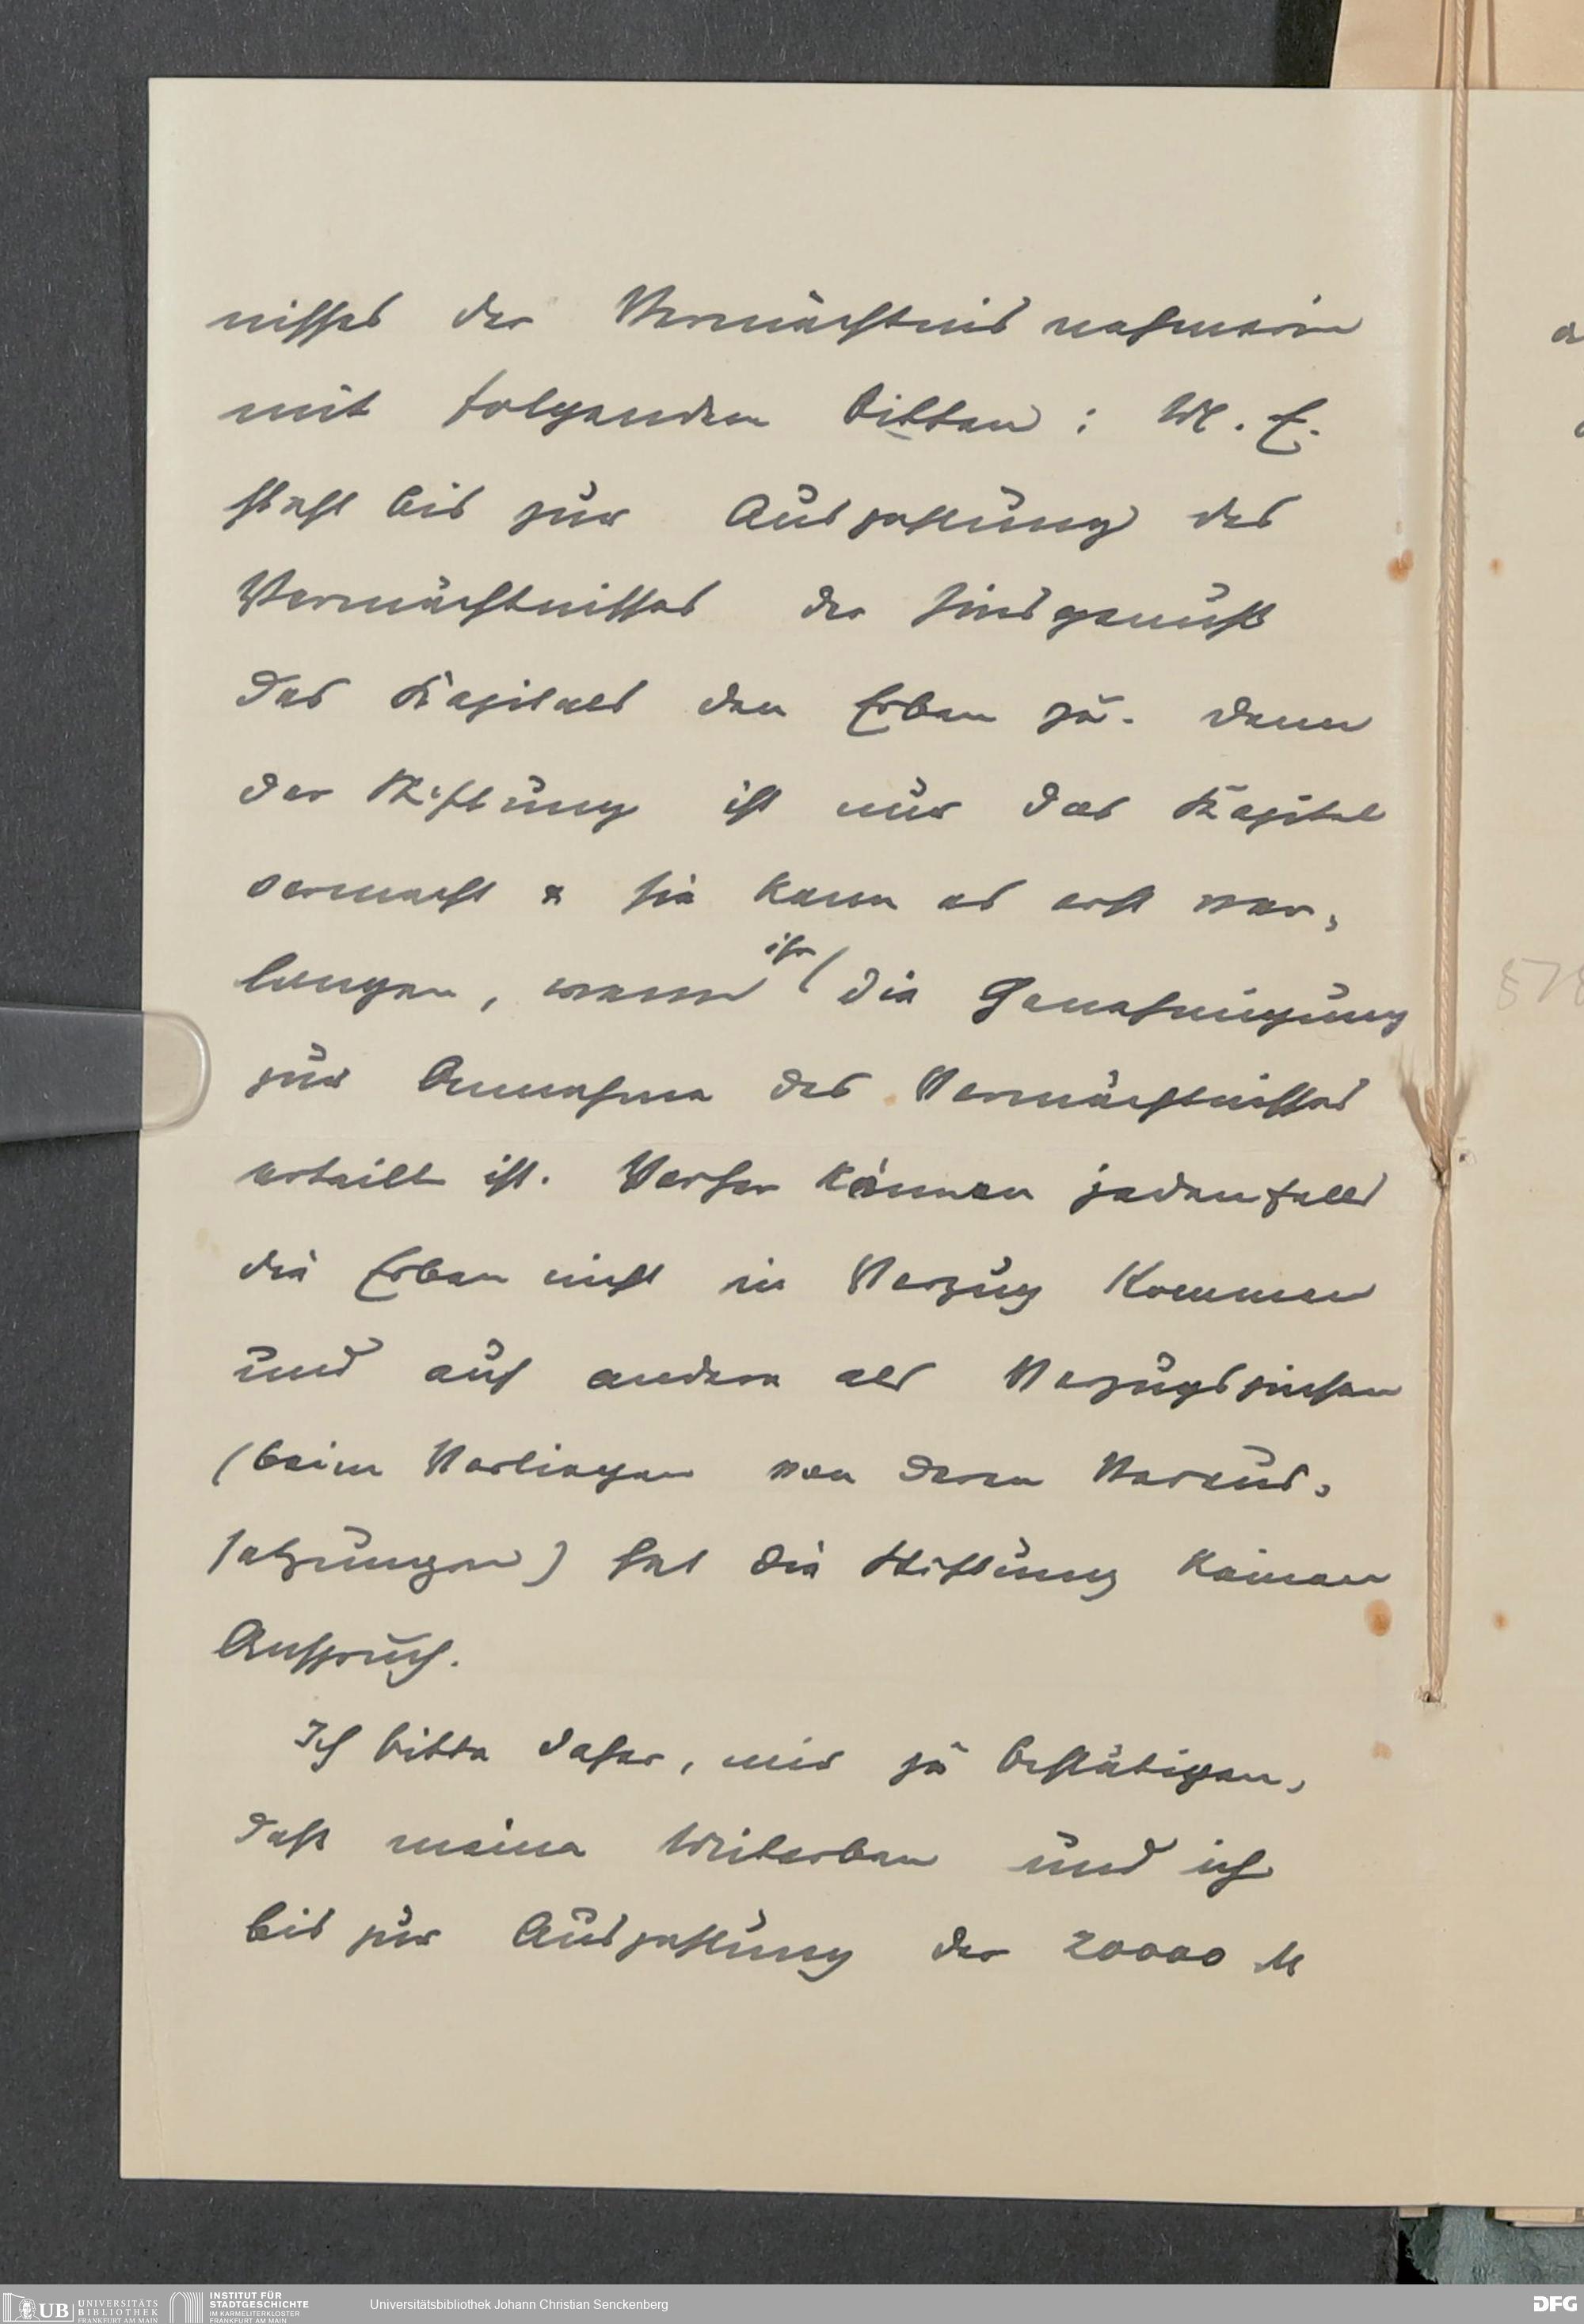 nisses der Vermächtnisnehmerin
mit folgenden Bitten: M. E.
steht bis zur Auszahlung des
Vermächtnisses der Zinsgenuß
des Kapitals den Erben zu. Denn
der Stiftung ist nur das Kapital
vermacht & sie kann es erst ver-
langen, wenn ihr die Genehmigung
zur Annahme des Vermächtnisses
erteilt ist. Vorher können jedenfalls
die Erben nicht in Verzug kommen
und auf andere als Verzugszinsen
(beim Vorliegen von deren Voraus-
setzungen) hat die Stiftung keinen
Anspruch.
Ich bitte daher, mir zu bestätigen,
daß meine Miterben und ich
bis zur Auszahlung der 20000 M
UB UNIVERSITÄTS
BIBLIOTHEK
FRANKFURT AM MAIN
INSTITUT FÜR
STADTGESCHICHTE
IM KARMELITERKLOSTER
FRANKFURT AM MAIN
Universitätsbibliothek Johann Christian Senckenberg
DFG